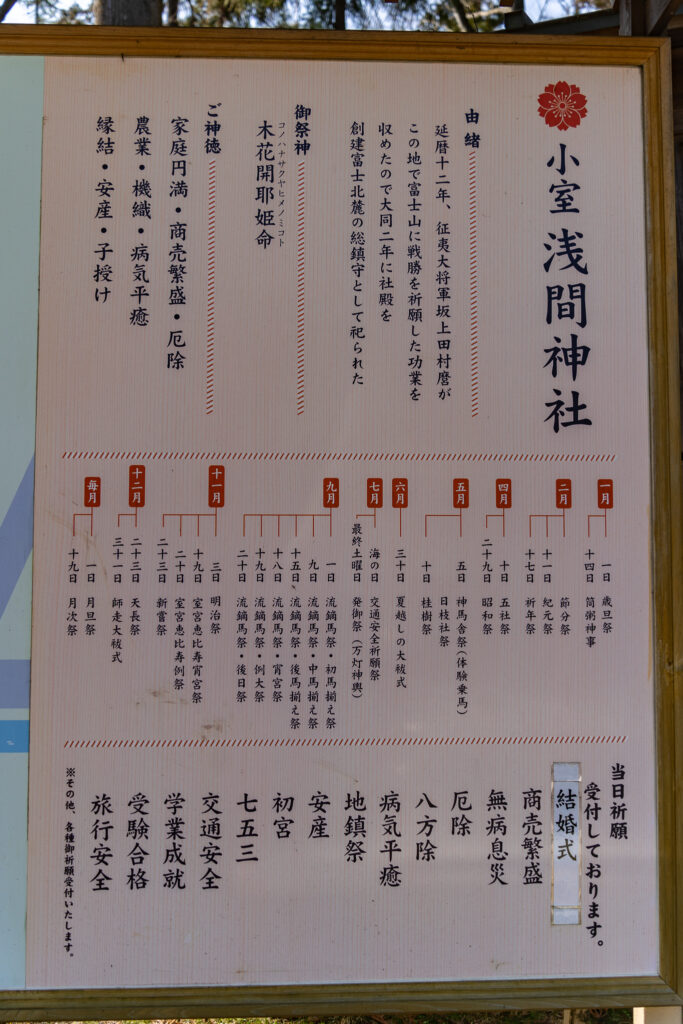 小室浅間神社
由緒
延暦十二年、征夷大将軍坂上田村麿が
この地で富士山に戦勝を祈願した功業を
収めたので大同二年に社殿を
創建富士北麓の総鎮守として祀られた
御祭神
コノハナサクヤヒメノミコト
木花開耶姫命
ご神徳
家庭円満・商売繁盛・厄除
農業・機織・病気平癒
縁結・安産・子授け
一月
一日 歳旦祭
十四日 筒粥神事
二月
節分祭
十一日 紀元祭
十七日 祈年祭
四月
十日 五社祭
二十九日 昭和祭
五月
五日 神馬舎祭(体験乗馬)
日枝社祭
十日 桂樹祭
六月
三十日 夏越しの大祓式
七月
海の日 交通安全祈願祭
最終土曜日 発御祭(万灯神輿)
九月
一日 流鏑馬祭・初馬揃え祭
九日 流鏑馬祭・中馬揃え祭
十五日〜 流鏑馬祭・後馬揃え祭
十八日 流鏑馬祭・宵宮祭
十九日 流鏑馬祭・例大祭
二十日 流鏑馬祭・後日祭
十一月
三日 明治祭
十九日 室宮恵比寿宵宮祭
二十日 室宮恵比寿例祭
二十三日 新嘗祭
十二月
二十三日 天長祭
三十一日 師走大祓式
毎月
一日 月旦祭
十九日 月次祭
当日祈願
受付しております。
結婚式
商売繁盛
無病息災
厄除
八方除
病気平癒
地鎮祭
安産
初宮
七五三
交通安全
学業成就
受験合格
旅行安全
※その他、各種御祈願受付いたします。